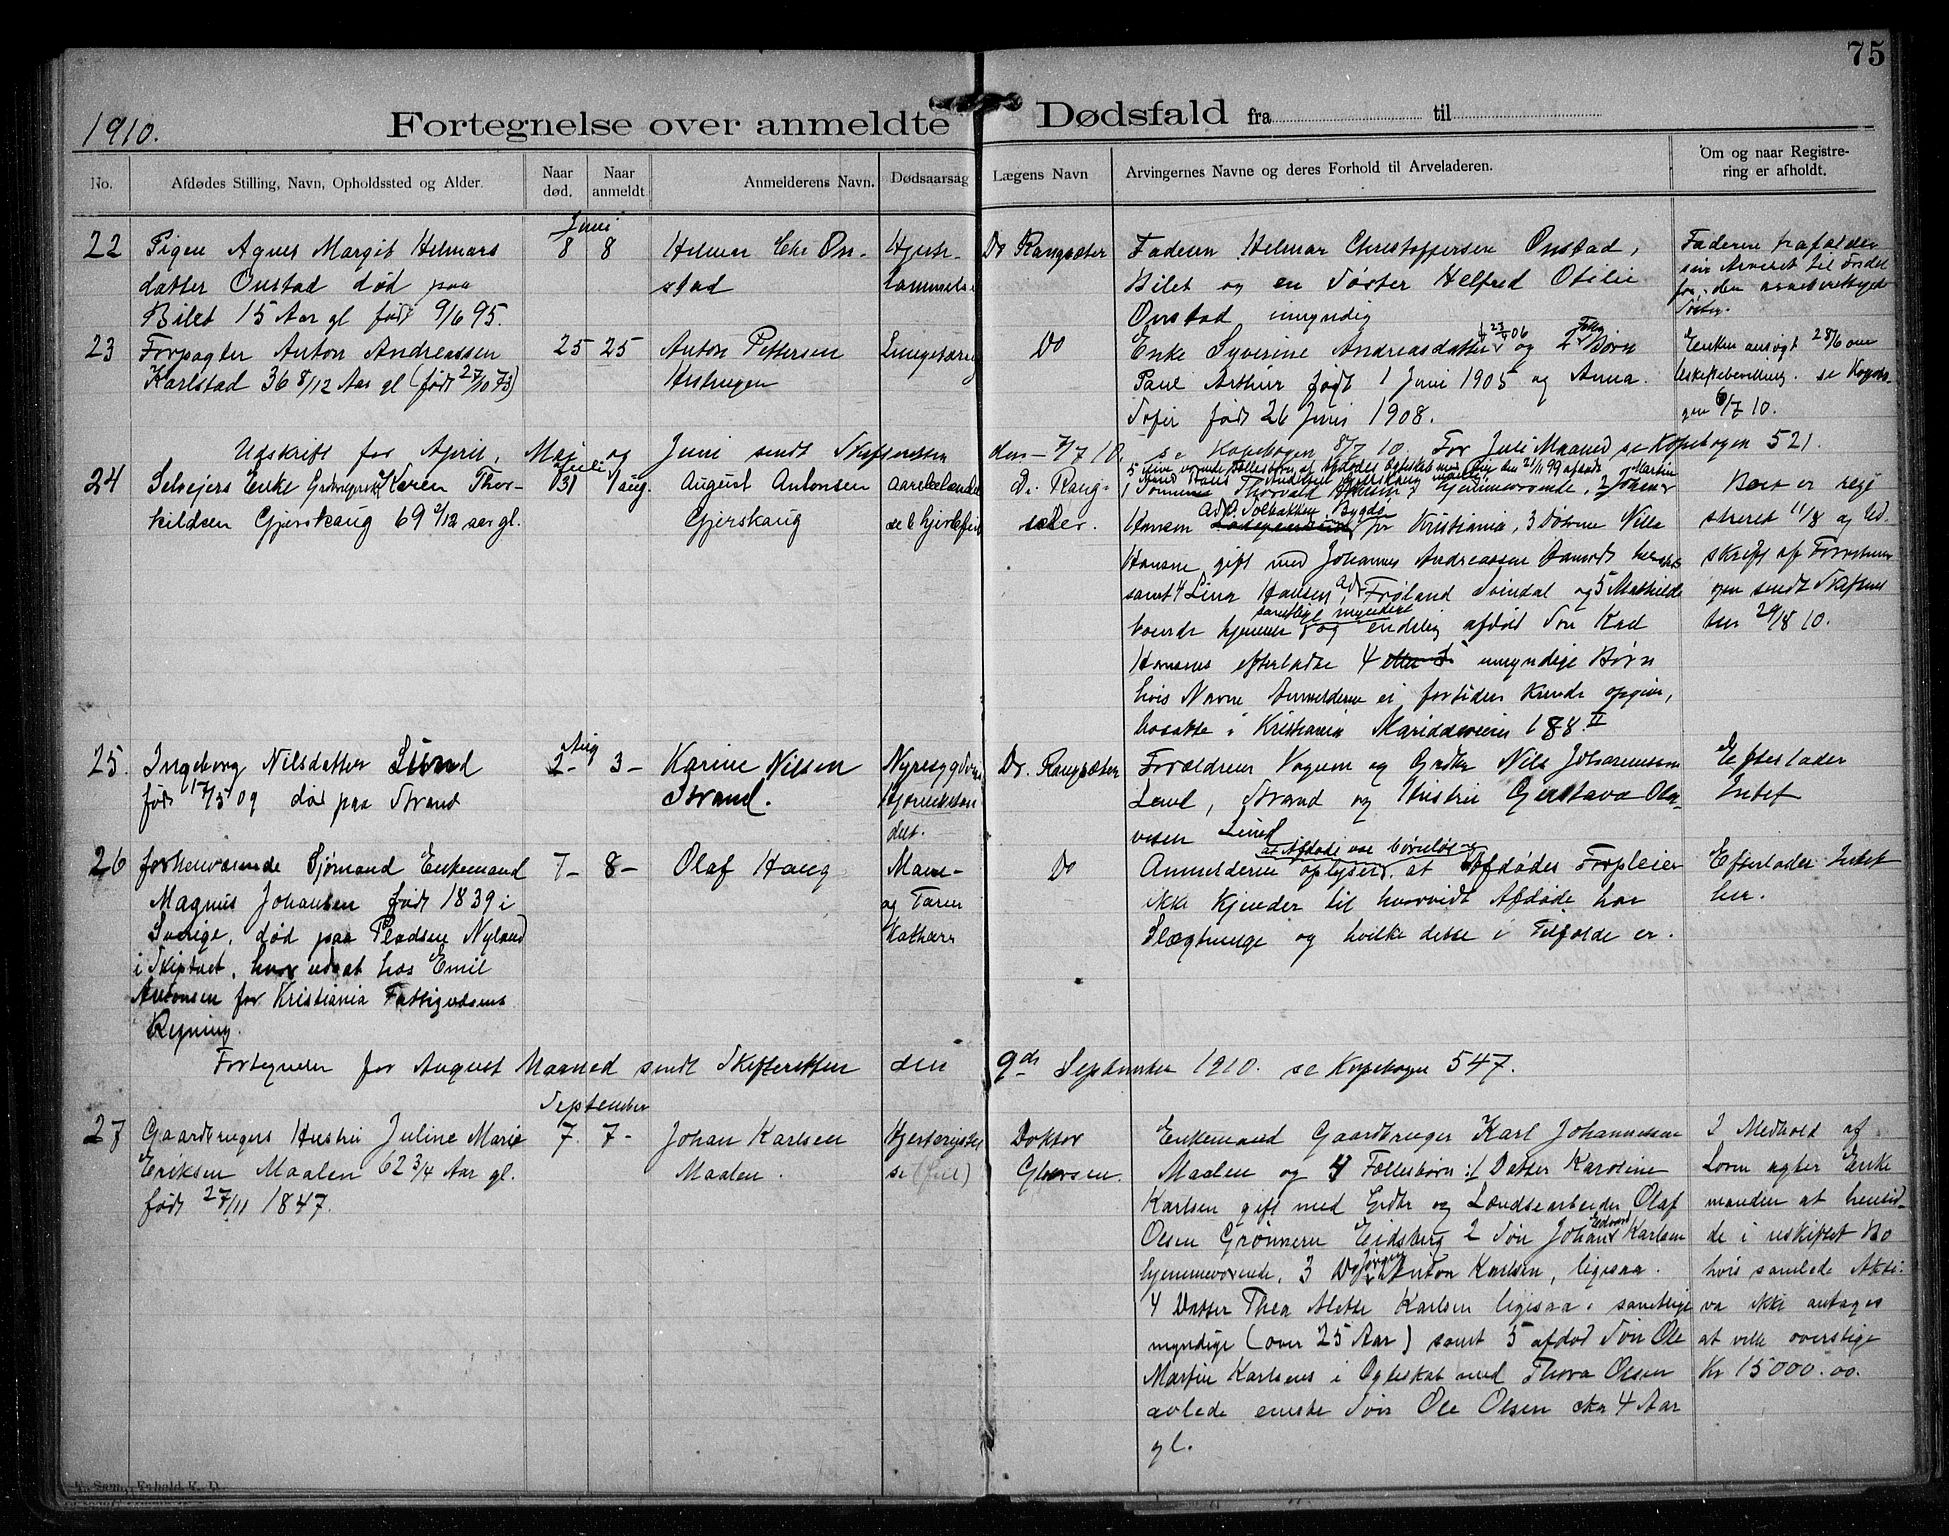 75
1910.
Fortegnelse over anmeldte Dødsfald fra til
No.
Afdødes Stilling, Navn, Opholdssted og Alder.
Naar død.
Naar anmeldt
Anmelderens Navn.
Dødsaarsag
Lægens Navn
Arvingernes Navne og deres Forhold til Arveladeren.
Om og naar Registre-
ring er afholdt.
22
Pigen Agnes Margit Helmers
datter Onstad død paa
Bilet 15 Aar gl født 9/6 95.
Juni
8 8
Helmer Chr On-
stad
Hjerte-
lammelse
Dr Rangsæter
Faderen Helmar Christoffersen Onstad,
Bilet og en Søster Helfred Otilie
Onstad umyndig
Faderen frafalder
sin Arveret til Fordel
for den
Søster.
23
Forpagter Anton Andreassen
Karlstad 36 8/12 Aar gl (født 27/10 73)
25 25
Anton Pettersen
Hustrugen
Lungetæring
Do
Enke Syverine Andreasdatter og 2 Børn
Paul Arthur født 1 Juni 1905 og Anna
Sofie født 26 Juni 1908.
Enken ansøgt 28/6 om
uskiftebevilling. se Kopibo-
gen 6/7 10.
Udskrift for April, Mai og Juni sendt Skifteretten den 7/7 10. se Kopebogen 8/7 10. For Juli Maaned se Kopebogen 521.
24
Selveiers Enke Karen Thor-
kildsen Gjerskaug 69 2/12 aar gl.
Juli
31 1/aug.
August Antonsen
Gjerskaug
aareladende
hjertefeil
Dr. Rang-
sæter.
5 Fællesbørn af Afdødes Egteskab med den 21/11 99 afdøde
1 Sønnen Thorvald Hansen, hjemmeværende, 2 Johan Martin
Hansen adr. Solbakken, Bygdø pr Kristiania, 3 Døtrene Nilla
Hansen gift med Johannes Andreassen
samt 4 Lina Hansen, adr Frøland Svindal og 5 Mathilde
boende hjemme samtlige myndige og endelig afdød Søn Karl
Hansens efterladte 4 umyndige Børn
hvis Navne Anmelderen ei fortiden kunde opgive,
bosatte i Kristiania Maridalsveien 188 II
Boet er regi
streret 11/8 og Ud-
skrift af Forretnin
gen sendt Skifteret
ten 29/8 10.
25.
Ingeborg Nilsdatter Lund
født 17/5 09 død paa Strand
Aug
2- 3-
Karine Nilsen
Strand.
Nyresygdom
Dr. Rangsæter
Forældrene Vognm og Grdbr Nils Johannessen
Lund, Strand og Hustru Gustava Ola-
vesen Lund
Efterlader
Intet
26
forhenværende Sjømand Enkemand
Magnus Johansen født 1839 i
Sverige, død paa Pladsen Nyland
i Skiptvet, hvor udsat hos Emil
Antonsen for Kristiania Fattigvæsens
Regning.
7- 8-
Olaf Haug
Mave-
og Tarm
Katharr
Do
at Afdøde var børnløs og
Anmelderen oplyser, at Afdødes Forpleier
ikke kjender til hvorvidt Afdøde har
Slægtninge og hvilke disse i Tilfælde er.
Efterlader Intet
her.
Fortegnelse for August Maaned sendt Skifteretten den 9de September 1910. se Kopebogen 547.
27
Gaardbrugers Hustru Juline Marie
Eriksen Maalen 62 3/4 Aar gl.
født 27/11 1847.
September
7. 7-
Johan Karlsen
Maalen.
Hjertesygdom
(feil)
Doktor
Gløersen.
Enkemand Gaardbruger Karl Johannessen
Maalen og 4 Fællesbørn: 1 Datter Karoline
Karlsen gift med Grdbr og Landsearbeider Olaf
Olsen Grønnern Eidsberg 2 Søn Johan Edvard Karlsen
hjemmeværende, 3 Do Jørgen Anton Karlsen, ligesaa.
4 Datter Thea Alette Karlsen ligesaa. samtlige
myndige (over 25 Aar) samt 5 afdød Søn Ole
Martin Karlsens i Egteskab med Thora Olsen
avlede eneste Søn Ole Olsen cka 4 Aar
gl.
I Medhold af
Loven agter Enke
manden at hensid-
de i uskiftet Bo
hvis samlede Akti-
va ikke antages
at ville overstige
Kr 15000.00.